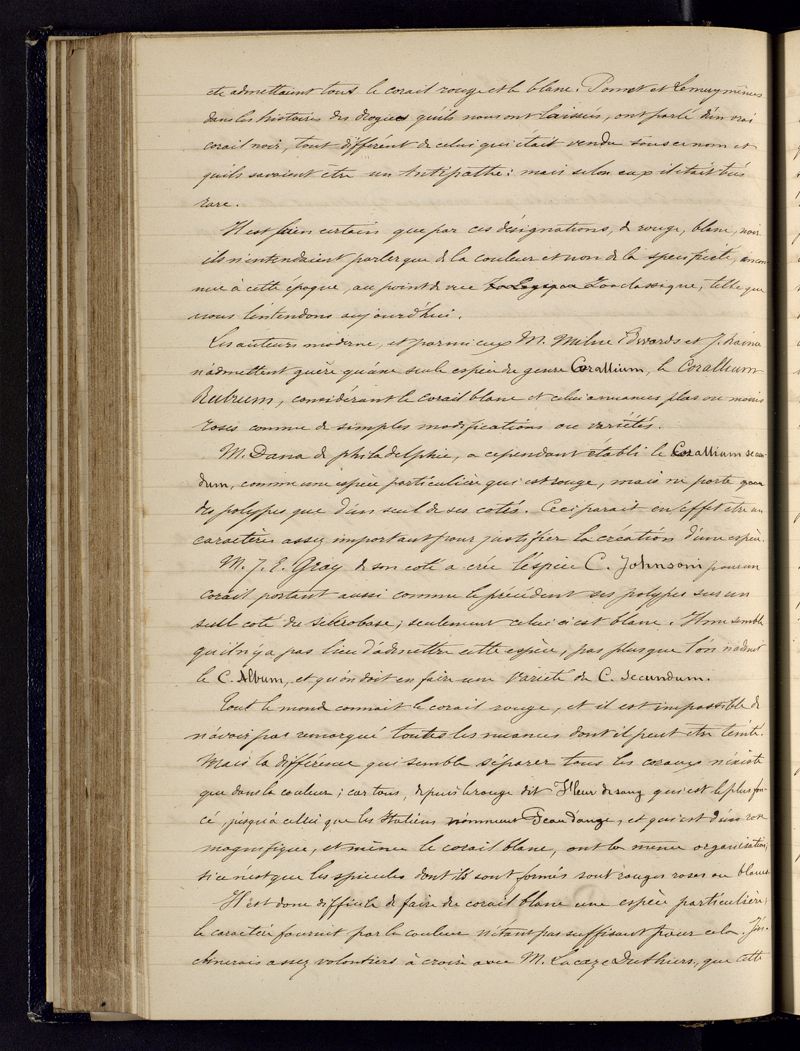 etc admettaient tous le corail rouge et le blanc. Pomet et Lemery mêmes
dans les histoires des drogues qu'ils nous ont laissés, ont parlé d'un vrai
corail noir, tout différent de celui qui était vendu sous ce nom et
qu'ils savaient être un Antipathe: mais selon eux il était très
rare.
Il est bien certain que par ces désignations, de rouge, blanc, noir
ils n'entendaient parler que de la couleur et non de la specificité, incon
nue à cette époque, au point de vue Zooclassique, telle que
nous l'entendons aujourd'hui.
Les auteurs moderne, et parmi eux M. Milne Edwards et J. Haime
n'admettent guère qu'une seule espèce du genre Corallium, le Corallium
Rubrum, considérant le corail blanc et celui a nuances plus ou moins
roses comme de simples modifications ou variétés.
M. Dana de philadelphie, a cependant établi le Corallium secun
dum, comme une espèce particulière qui est rouge, mais ne porte
des polypes que d'un seul de ses cotés. Ceci parait en effet être un
caractère assez important pour justifier la création d'une espèce.
M. J. E. Gray de son coté a crée l'espèce C. Johnsoni pour un
corail portant aussi comme le précédent ses polypes sur un
seul coté du sclérobase; seulement celui ci est blanc. Il me semble
qu'il n'y a pas lieu d'admettre cette espèce, pas plus que l'on n'admet
le C. Album, et qu'on doit en faire une variété du C. Secundum.
Tout le monde connait le corail rouge, et il est impossible de
n'avoir pas remarqué toutes les nuances dont il peut être teinté.
Mais la différence qui semble séparer tous les coraux n'existe
que dans la couleur; car tous, depuis le rouge dit Fleur de sang qui est le plus fon
cé, jusqu'à celui que les Italiens nomment Peau d'ange, et qui est d'un rose
magnifique, et même le corail blanc, ont la même organisation,
si ce n'est que les spicules dont ils sont formés sont rouges roses ou blancs
Il est donc difficile de faire du corail blanc une espèce particulière,
le caractère fournit par la couleur n'étant pas suffisant pour cela. J'in
clinerais assez volontiers à croire avec M. Lacaze Duthiers, que cette